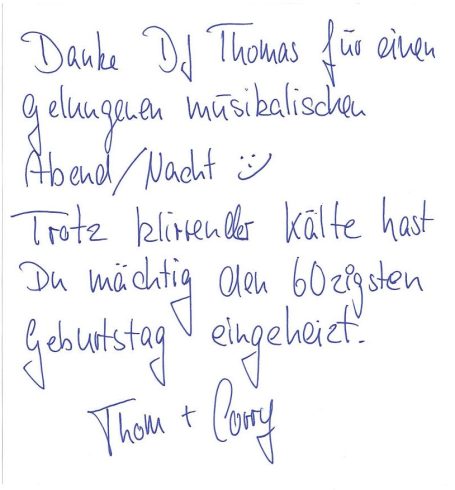 Danke DJ Thomas für einen
gelungenen müsikalischen
Abend/Nacht :)
Trotz klirrender Kälte hast
Du mächtig den 60zigsten
Geburtstag eingeheizt.
Thom + Corry